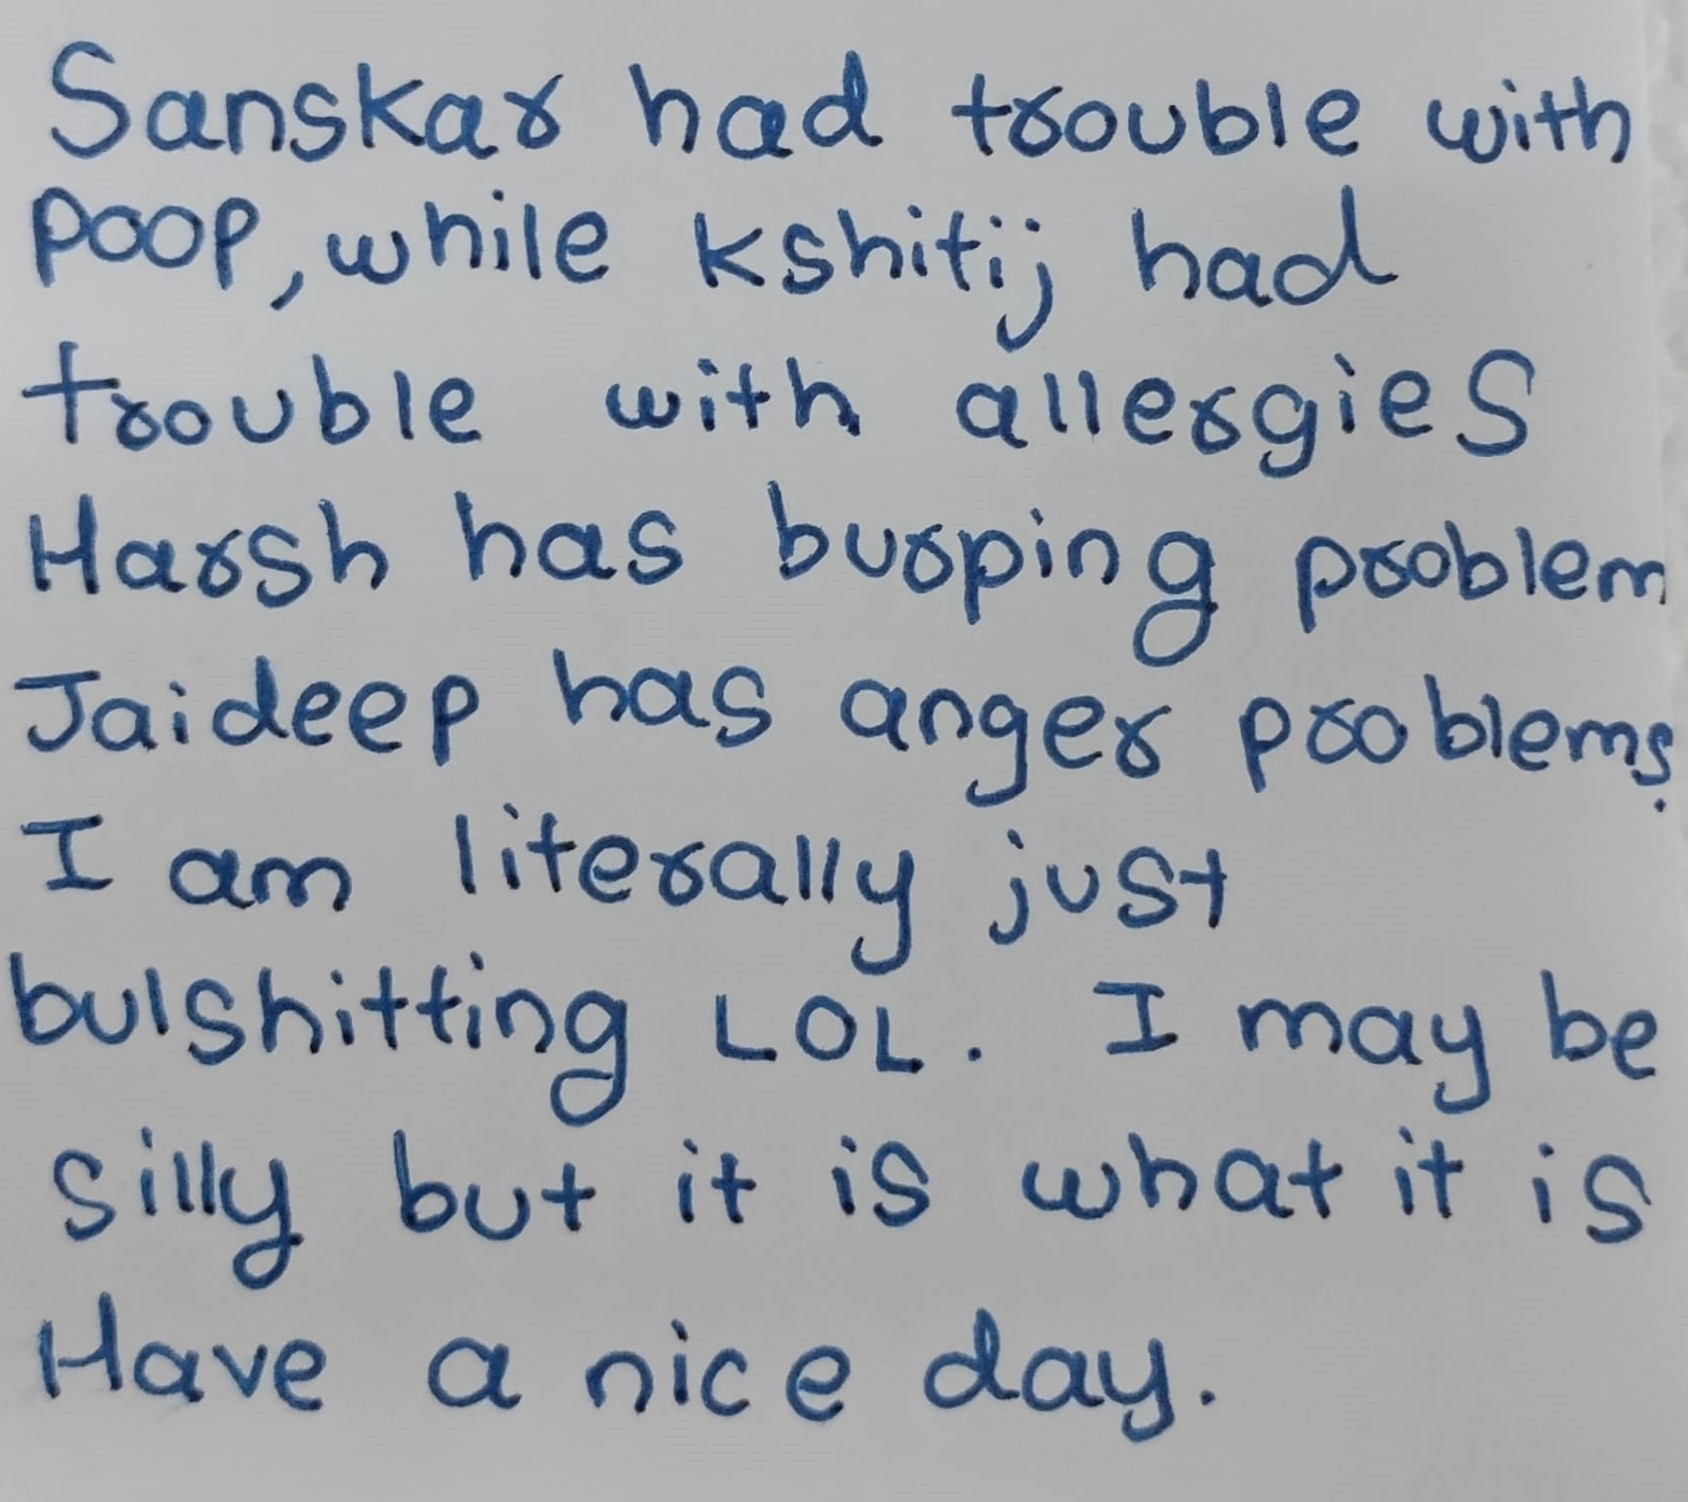 Sanskar had trouble with
poop, while kshitij had
trouble with allergies
Harsh has burping problem
Jaideep has anger problems.
I am literally just
bulshitting LOL. I may be
silly but it is what it is
Have a nice day.